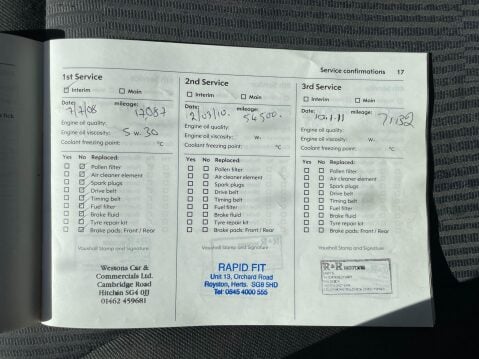 Service confirmations 17
1st Service
Interim Main
Date: mileage:
7/7/08 17087
Engine oil quality:
Engine oil viscosity: 5 w. 30
Coolant freezing point: °C
Yes No Replaced:
Pollen filter
Air cleaner element
Spark plugs
Drive belt
Timing belt
Fuel filter
Brake fluid
Tyre repair kit
Brake pads: Front / Rear
Vauxhall Stamp and Signature
Westons Car &
Commercials Ltd.
Cambridge Road
Hitchin SG4 0JJ
01462 459681
2nd Service
Interim Main
Date: mileage:
2/03/10. 54500.
Engine oil quality:
Engine oil viscosity: w.
Coolant freezing point: °C
Yes No Replaced:
Pollen filter
Air cleaner element
Spark plugs
Drive belt
Timing belt
Fuel filter
Brake fluid
Tyre repair kit
Brake pads: Front / Rear
Vauxhall Stamp and Signature
RAPID FIT
Unit 13, Orchard Road
Royston, Herts. SG8 5HD
Tel: 0845 4000 555
3rd Service
Interim Main
Date: mileage:
10.1.11 71132
Engine oil quality:
Engine oil viscosity: w.
Coolant freezing point: °C
Yes No Replaced:
Pollen filter
Air cleaner element
Spark plugs
Drive belt
Timing belt
Fuel filter
Brake fluid
Tyre repair kit
Brake pads: Front / Rear
Vauxhall Stamp and Signature
R&R